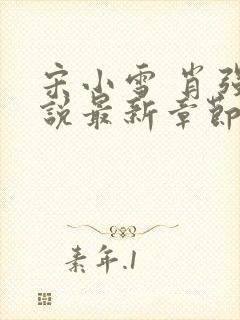 宋小雪 肖强
說最新章節
素年.1